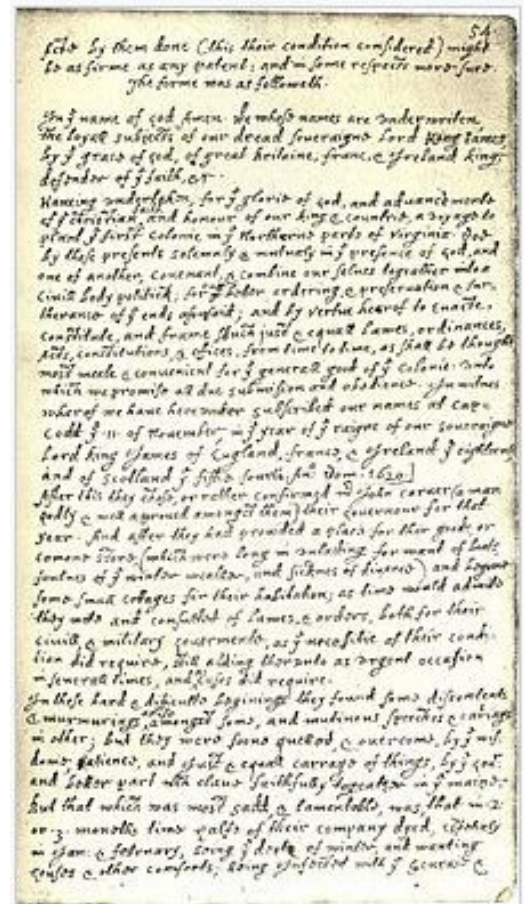 54
by them done (this their condition considered) might
be as firme as any patent; and in some respects more sure.
The forme was as followeth.
In yͤ name of god Amen. We whose names are underwriten,
the loyall subjects of our dread soveraigne Lord King James,
by yͤ grace of god, of great Britaine, franc, & Ireland king,
defender of yͤ faith, &c.
Haveing undertaken, for yͤ glorie of god, and advancemente
of yͤ christian faith and honour of our king & countrie, a voyage to
plant yͤ first colonie in yͤ Northerne parts of Virginia. Doe
by these presents solemnly & mutualy in yͤ presence of god, and
one of another, covenant, & combine our selves togeather into a
civill body politick; for yͤ better ordering, & preservation & fur-
therance of yͤ ends aforesaid; and by vertue hearof to enacte,
constitute, and frame shuch just & equall lawes, ordinances,
Acts, constitutions, & offices, from time to time, as shall be thought
most meete & convenient for yͤ generall good of yͤ colonie: unto
which we promise all due submission and obedience. In witnes
wherof we have hereunder subscribed our names at Cap-
Codd yͤ .11. of November, in yͤ year of yͤ raigne of our soveraigne
Lord king James of England, france, & Ireland yͤ eighteenth
and of Scotland yͤ fiftie fourth. Anͦ Dom. 1620.]
After this they chose, or rather confirmed mͬ John carver (a man
godly & well approved amongst them) their governour for that
year. And after they had provided a place for their goods, or
comone store, (which were long in unlading for want of boats,
foulnes of yͤ winter weather, and sicknes of diverce) and begune
some small cottages for their habitation; as time would admitte
they mete and consulted of lawes, & orders, both for their
civill & military govermente, as yͤ necessitie of their condi-
tion did require, still adding therunto as urgent occasion
in severall times, and cases did require.
In these hard & difficulte beginings they found some discontents
& murmurings arise amongst some, and mutinous speeches & cariags
in other; but they were soone quelled, & overcome, by yͤ wis-
dome, patience, and just & equall carrage of things, by yͤ govʳ
and better part wᶜʰ clave faithfully togeather in yͤ maine.
But that which was most sadd, & lamentable, was, that in .2.
or .3. moneths time halfe of their company dyed, espetialy
in Jan: & february, being yͤ depth of winter, and wanting
houses & other comforts; being Infected with yͤ scurvie &